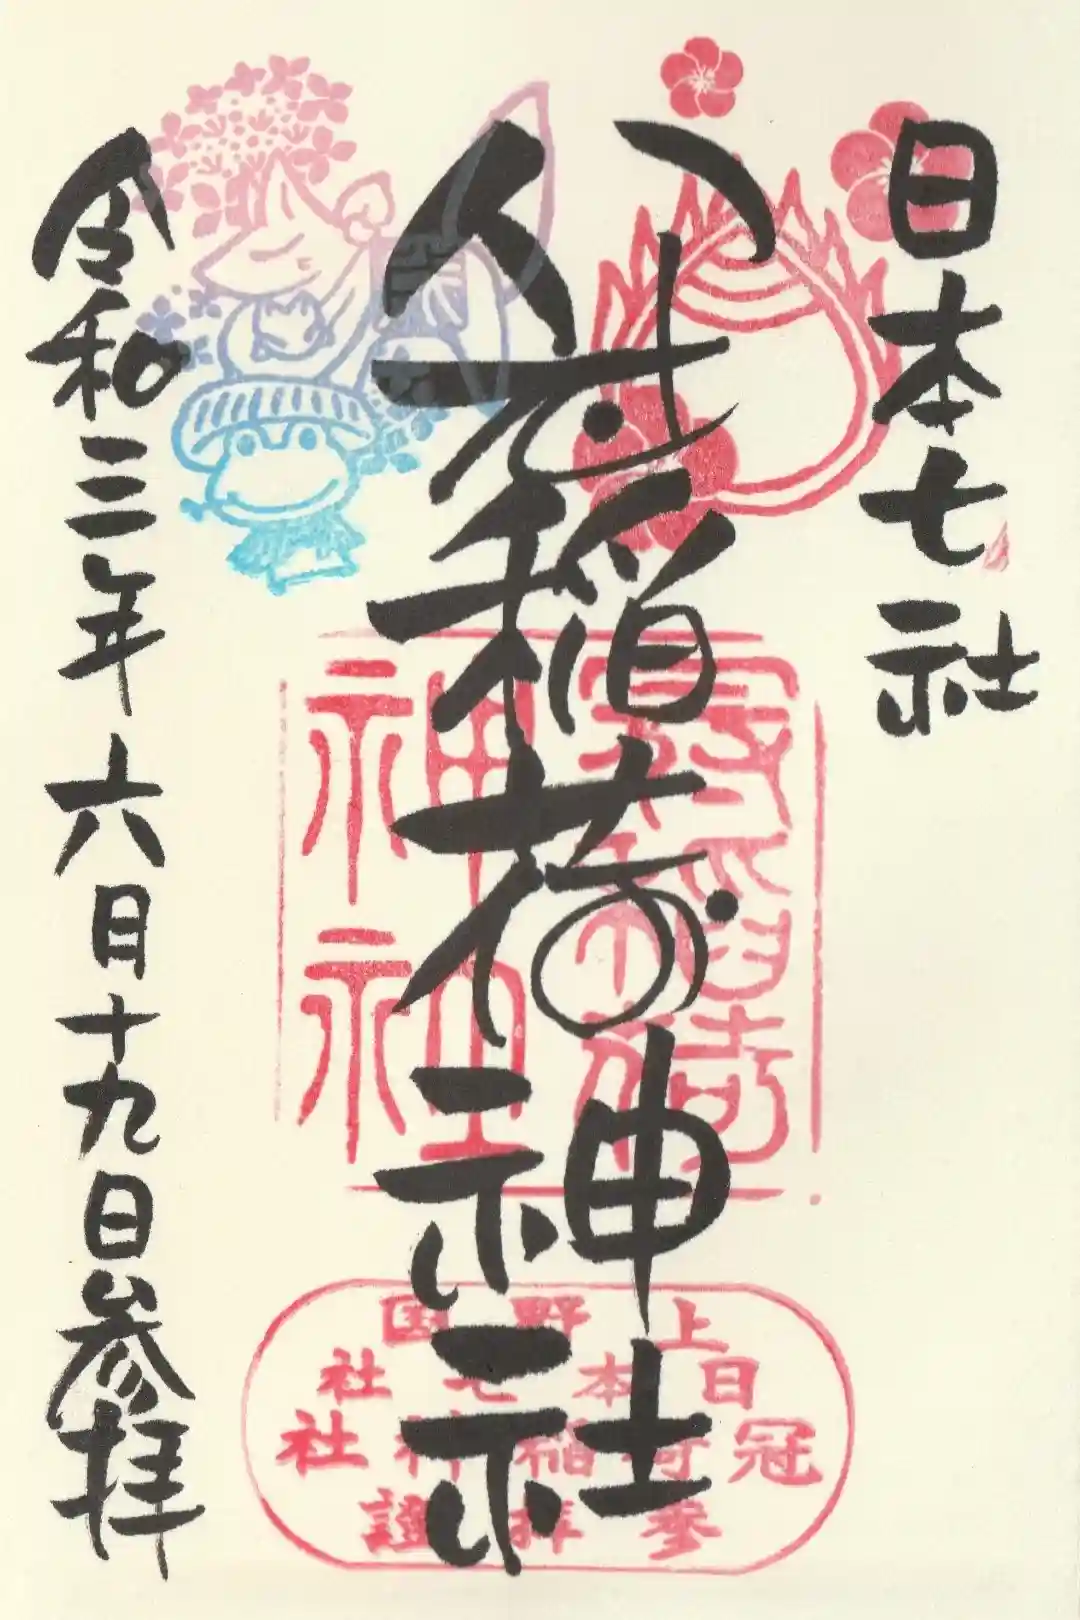 日本七社
冠稲荷神社
令和三年六月十九日参拝
冠稲荷
神社
上野国
日本七社
冠稲荷神社
参拝證